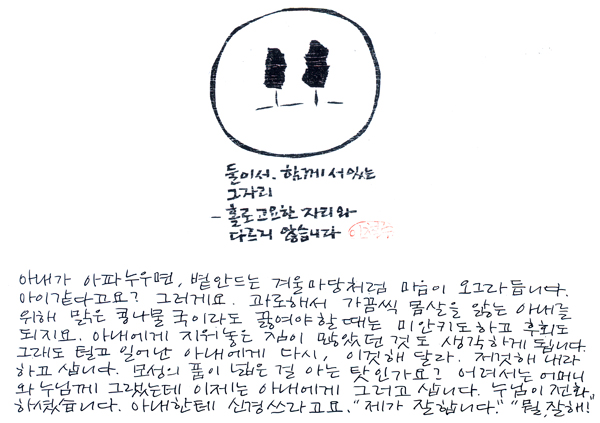 둘이서. 함께 서 있는
그 자리
- 홀로 고요한 자리와
다르지 않습니다
아내가 아파 누우면, 볕 안드는 겨울마당처럼 마음이 오그라듭니다.
아이같다고요? 그러게요. 과로해서 가끔씩 몸살을 앓는 아내를
위해 맑은 콩나물 국이라도 끓여야 할 때는 미안키도하고 후회도
되지요. 아내에게 지워놓은 짐이 많았던 것도 생각하게 됩니다.
그래도 털고 일어난 아내에게 다시, 이것해 달라. 저것해 내라
하고 삽니다. 모성의 품이 넓은 걸 아는 탓인가요? 어려서는 어머니
와 누님께 그랬는데 이제는 아내에게 그러고 삽니다. 누님이 전화
하셨습니다. 아내한테 신경쓰라고요. "제가 잘합니다." "뭘, 잘해!"